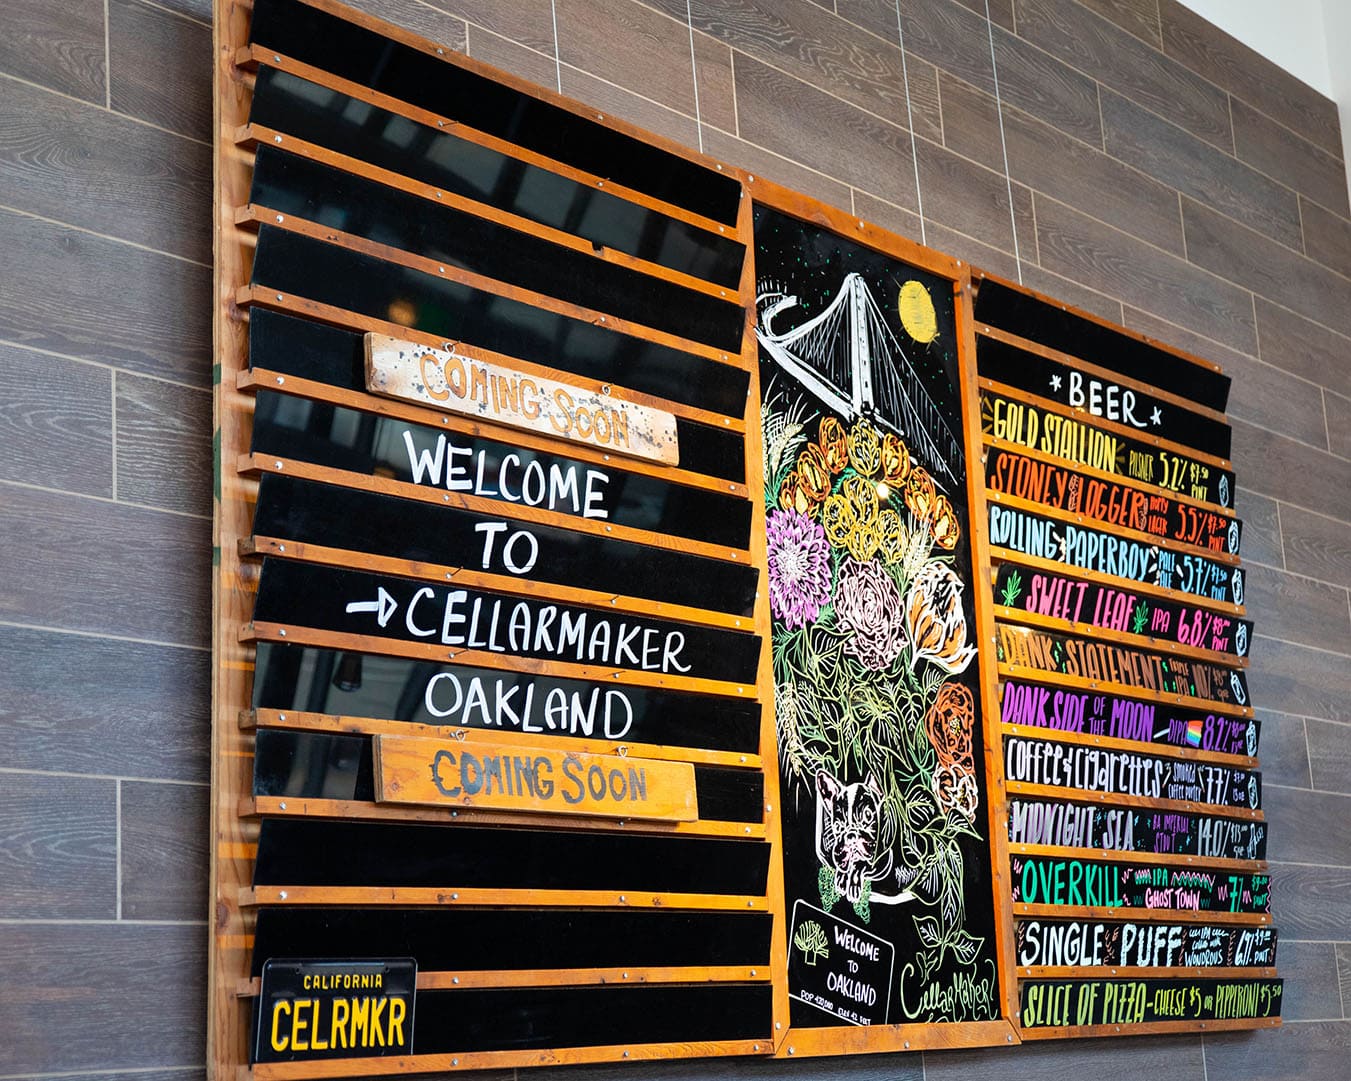 COMING SOON
WELCOME
TO
CELLARMAKER
OAKLAND
COMING SOON
CALIFORNIA
CELRMKR
WELCOME
TO
OAKLAND
POP 430,000 ELEV 42 FEET
CellarMaker
*BEER*
GOLD STALLION PILSNER 5.2% $7.50 PINT
STONEY LOGGER HOPPY LAGER 5.5% $7.50 PINT
ROLLING PAPERBOY PALE ALE 5.7% $7.50 PINT
SWEET LEAF IPA 6.8% $8.00 PINT
DANK STATEMENT TRIPLE IPA 10%
DANK SIDE OF THE MOON DIPA 8.2%
COFFEE & CIGARETTES SMOKED COFFEE PORTER 7.7%
MIDNIGHT SEA BA IMPERIAL STOUT 14.0%
OVERKILL IPA GHOST TOWN 7% PINT
SINGLE PUFF WONDROUS 6.7% PINT
SLICE OF PIZZA - CHEESE $5 OR PEPPERONI $5.50